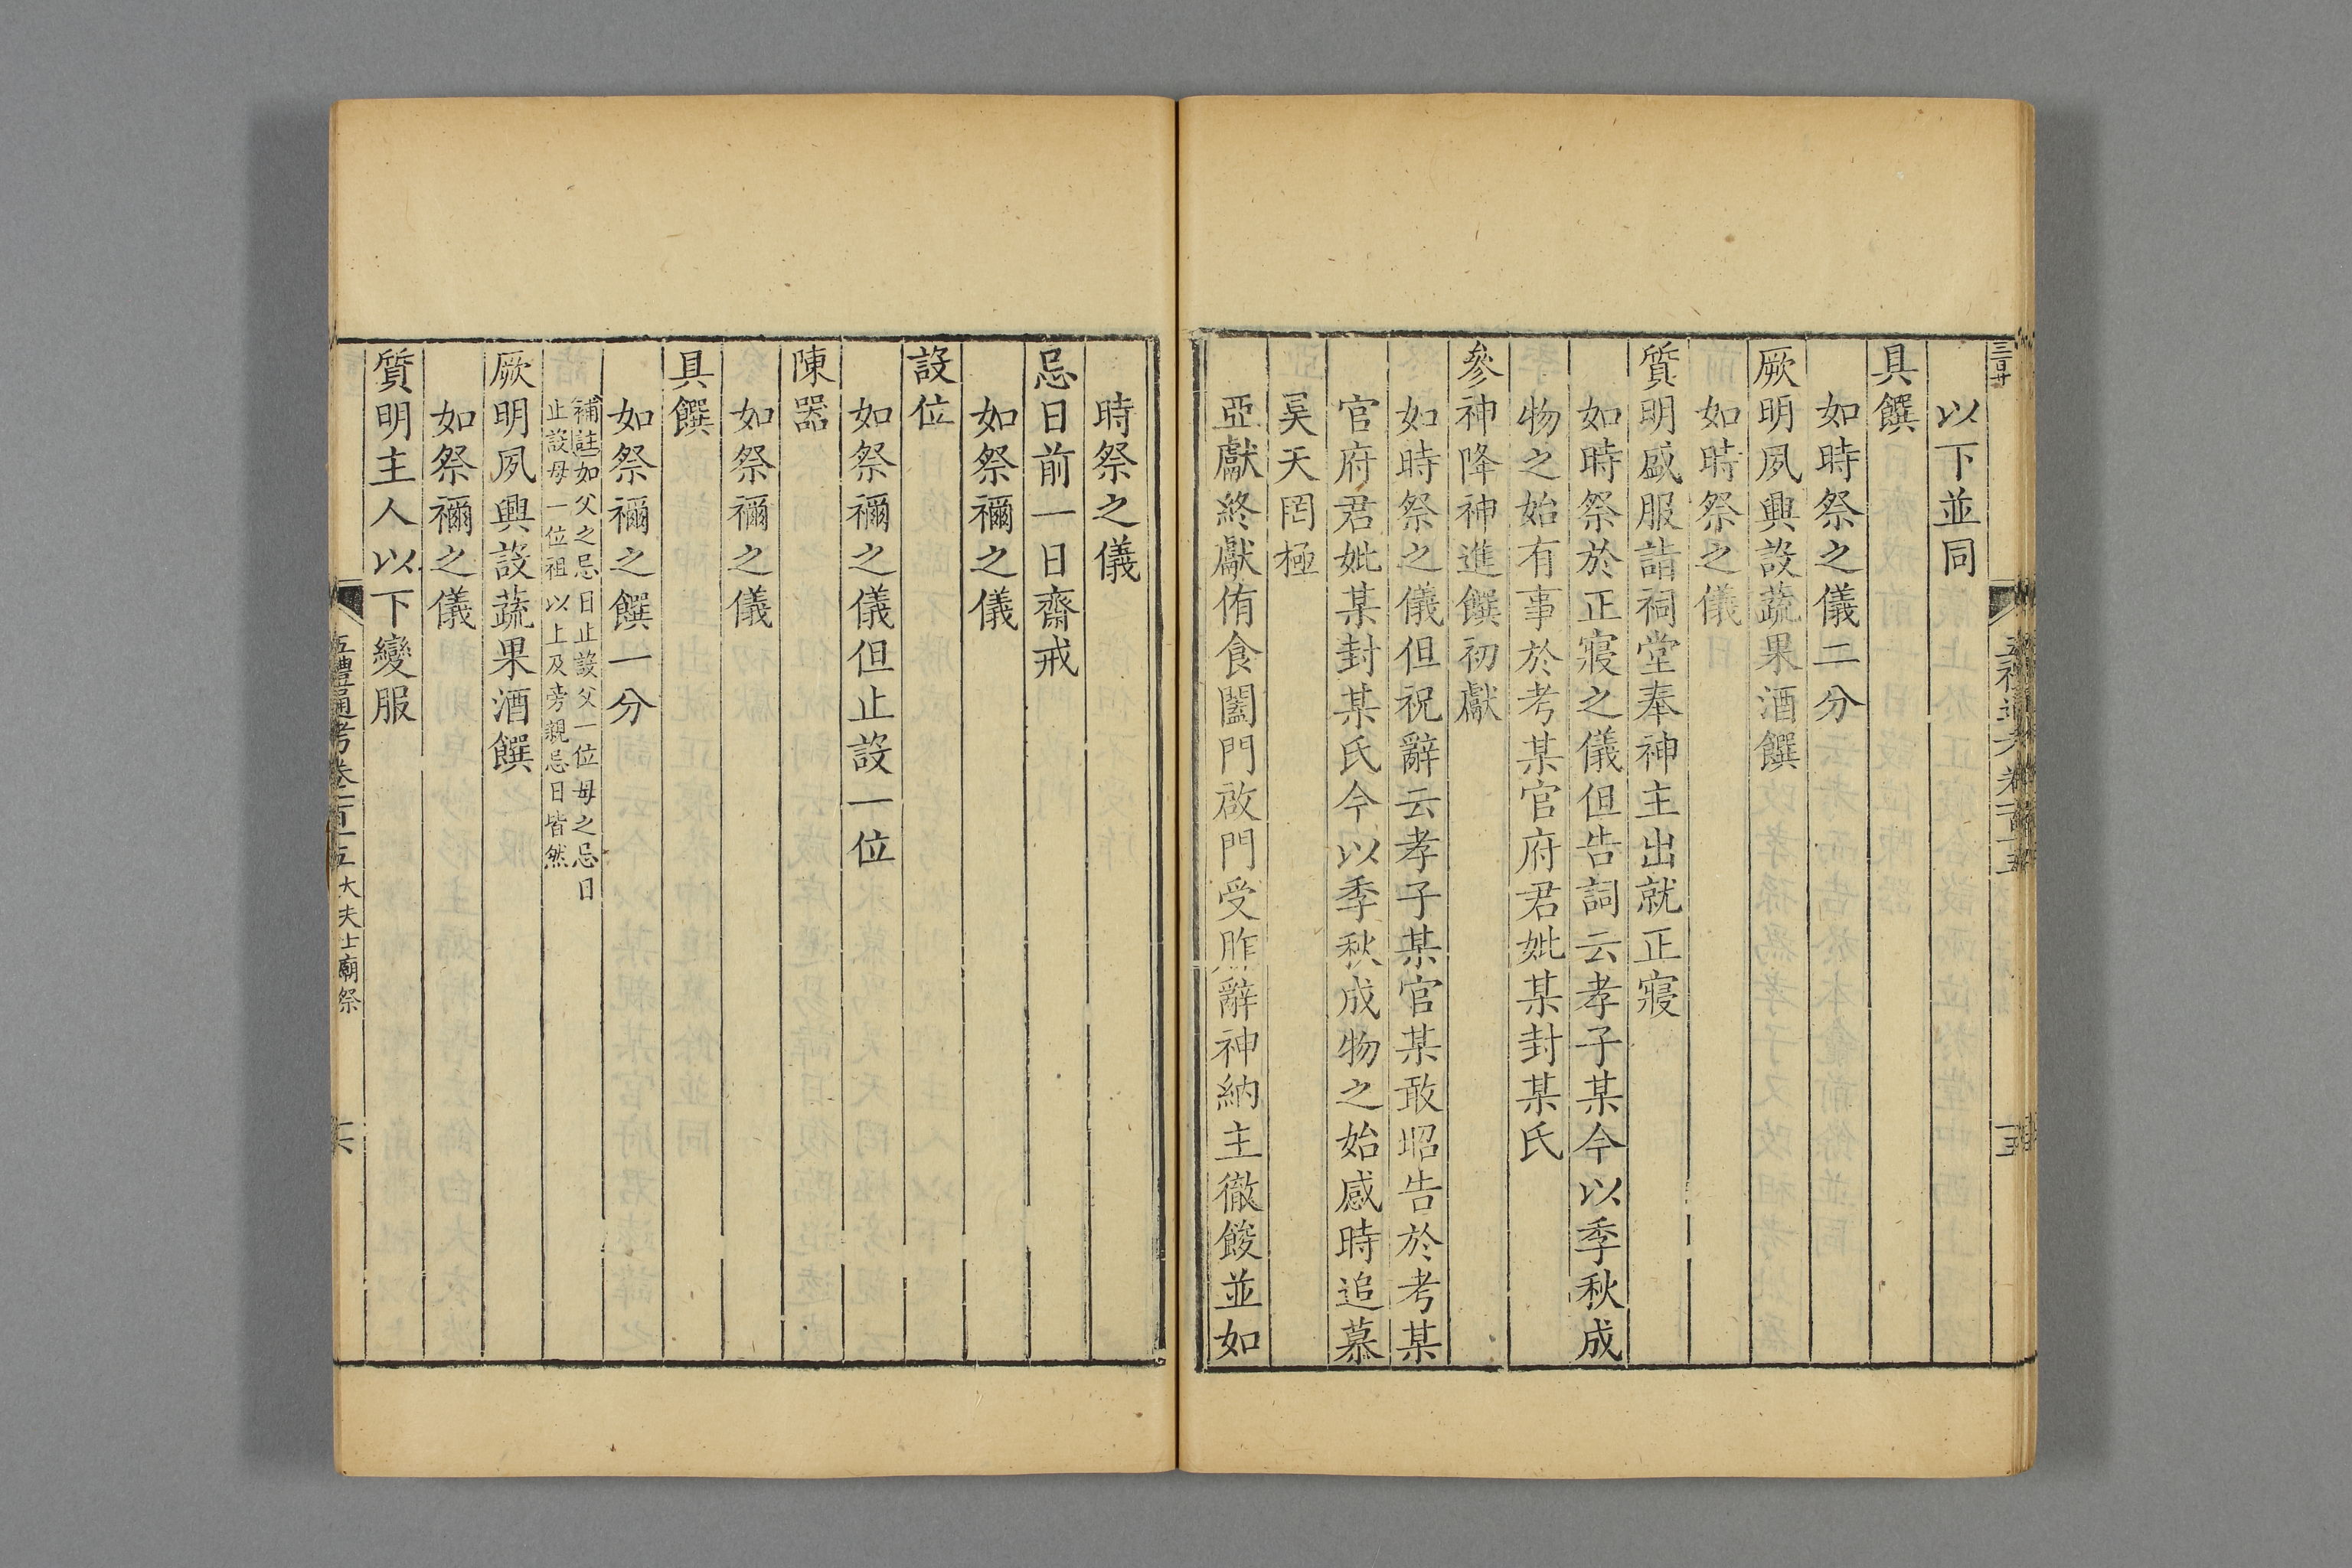 以下並同
具饌
如時祭之儀二分
厥明夙興設蔬果酒饌
如時祭之儀
質明盛服詣祠堂奉神主出就正寢
如時祭於正寢之儀但告詞云孝子某今以季秋成
物之始有事於考某官府君妣某封某氏
參神降神進饌初獻
如時祭之儀但祝辭云孝子某官某敢昭告於考某
官府君妣某封某氏今以季秋成物之始感時追慕
昊天罔極
亞獻終獻侑食闔門啟門受胙辭神納主徹餕並如
時祭之儀
忌日前一日齋戒
如祭禰之儀
設位
如祭禰之儀但止設一位
陳器
如祭禰之儀
具饌
如祭禰之饌一分
補註如父之忌日止設父一位母之忌日
止設母一位祖以上及旁親忌日皆然
厥明夙興設蔬果酒饌
如祭禰之儀
質明主人以下變服
五禮通考卷一百十五 大夫士廟祭